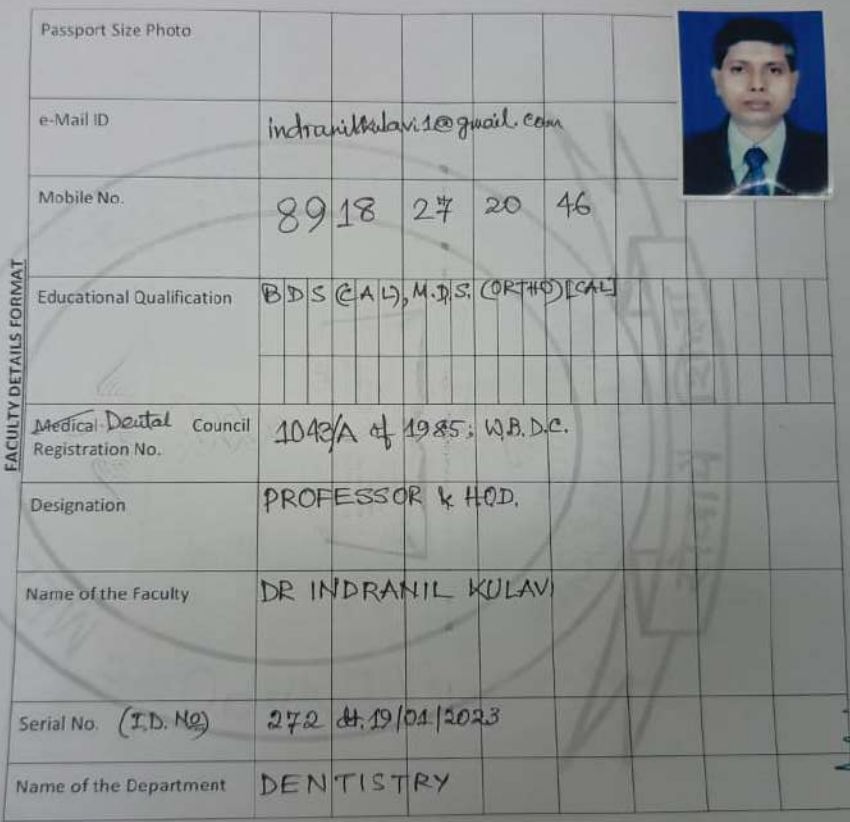 FACULTY DETAILS FORMAT
Passport Size Photo
e-Mail ID indranilkulavi1@gmail.com
Mobile No. 89 18 27 20 46
Educational Qualification BDS (CAL), M.D.S. (ORTHO) [CAL]
Medical Dental Council
Registration No. 1043/A of 1985; W.B.D.C.
Designation PROFESSOR & HOD.
Name of the Faculty DR INDRANIL KULAVI
Serial No. (I.D. No) 272 dt. 19/01/2023
Name of the Department DENTISTRY